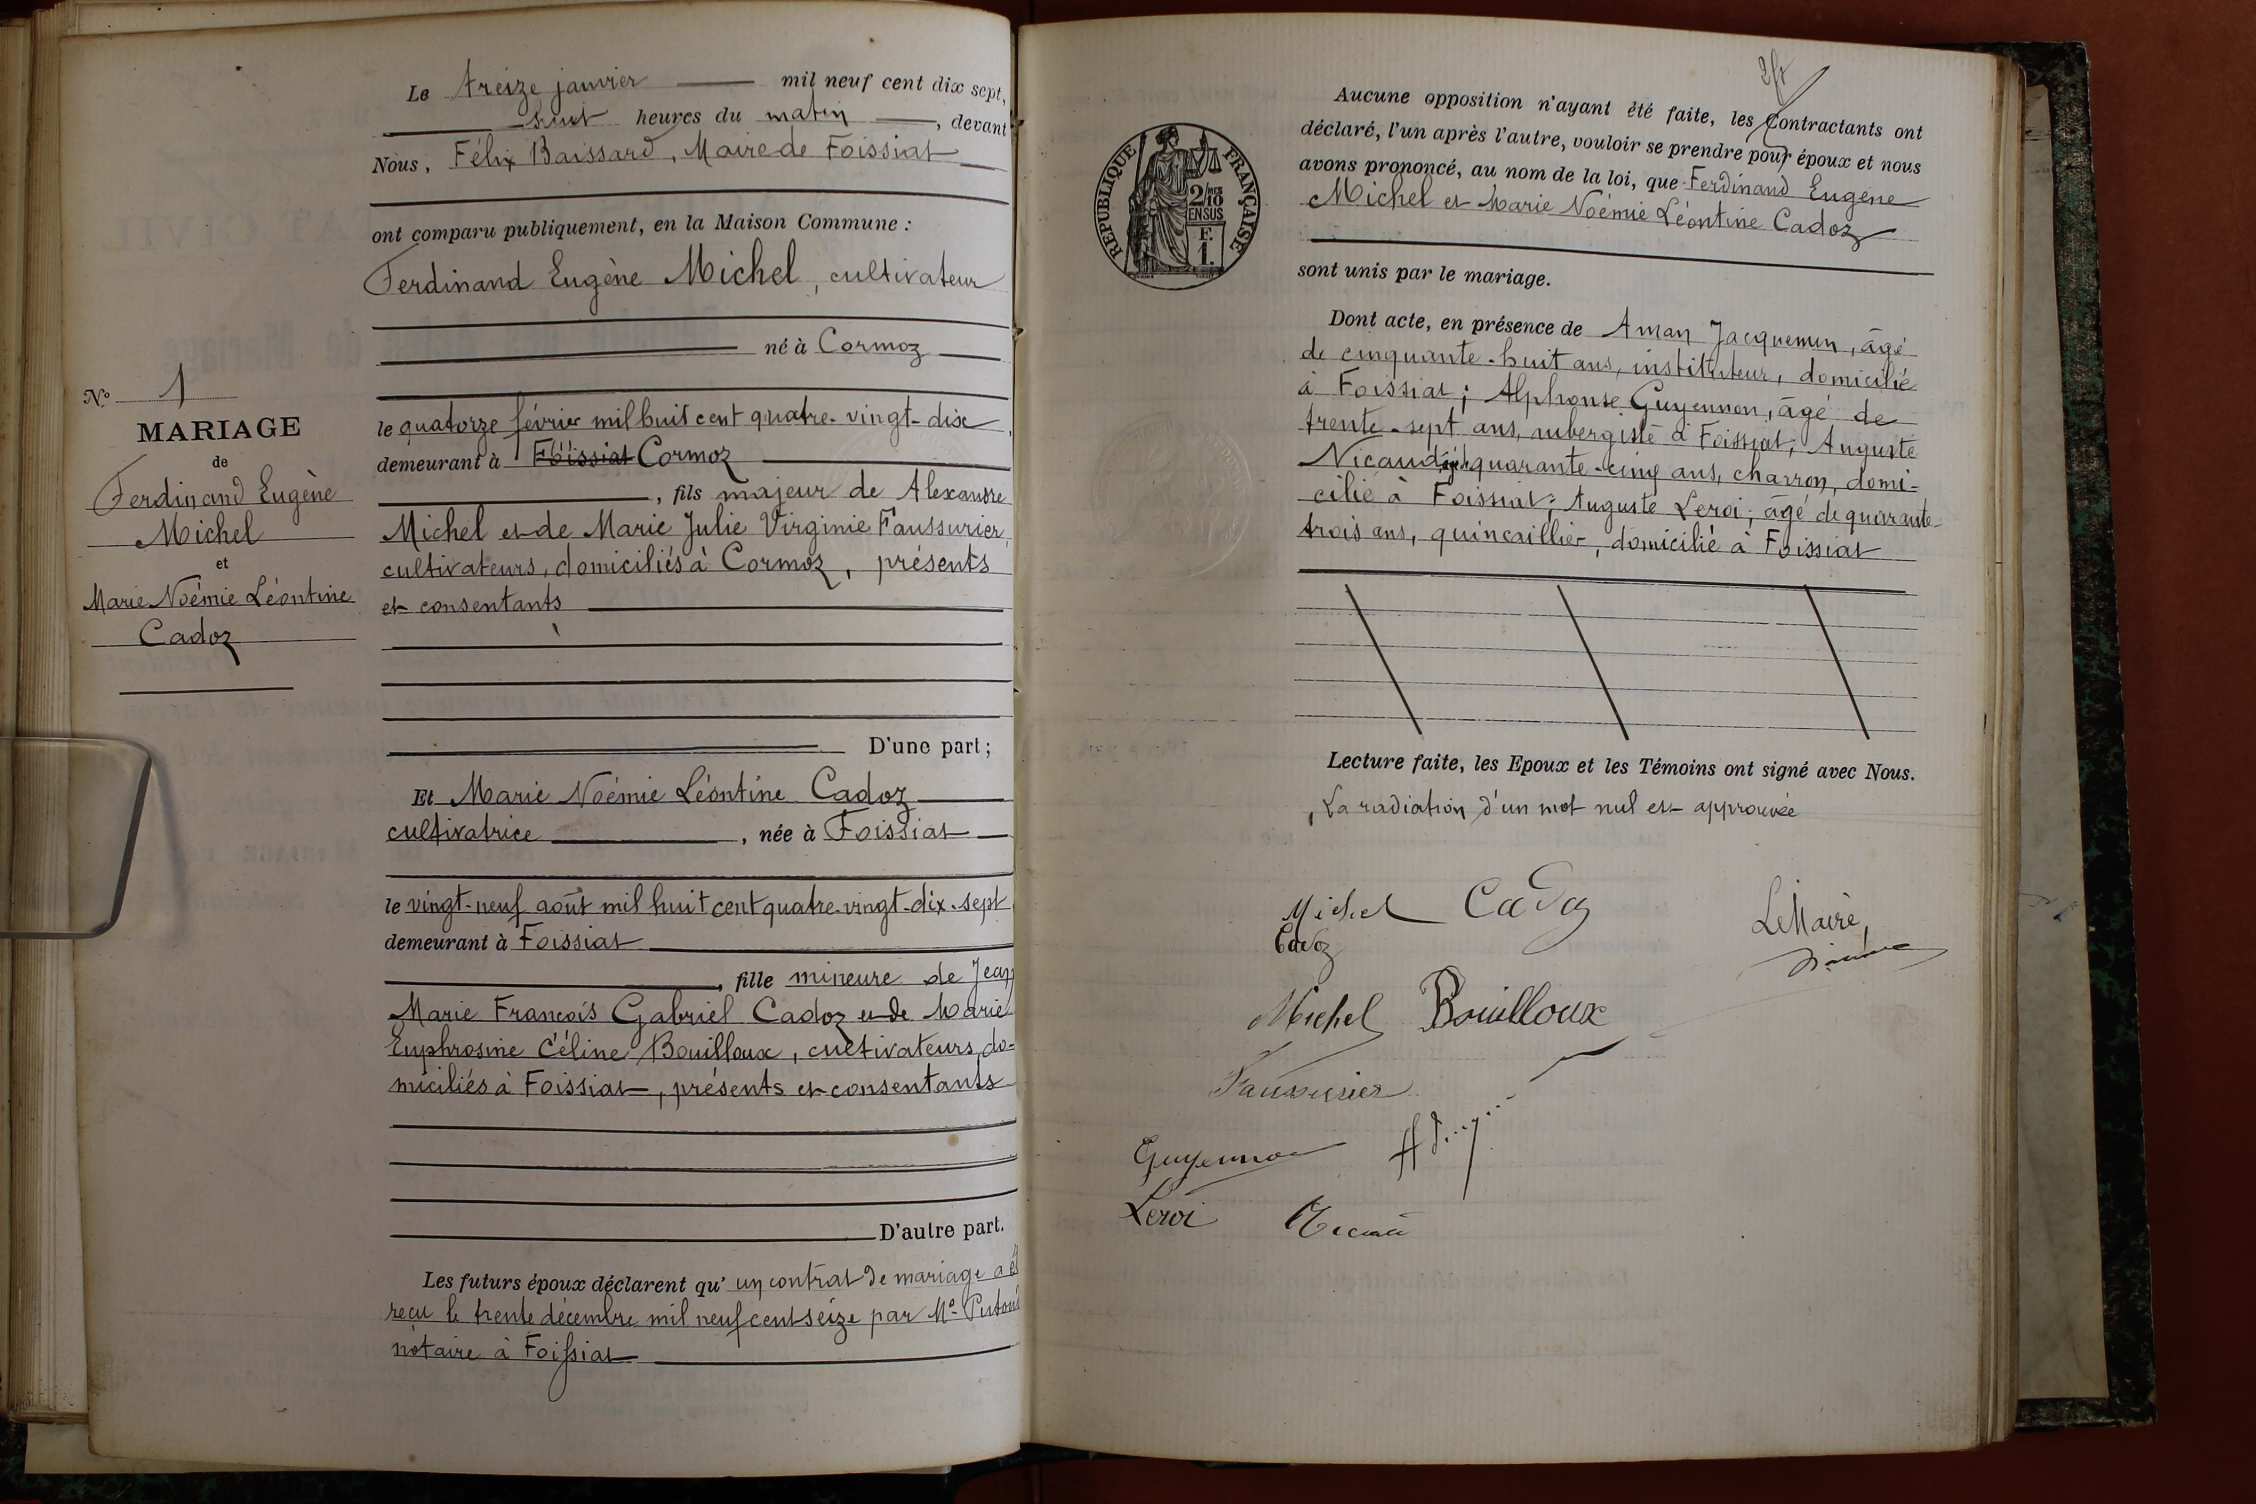 N.º 1
MARIAGE
de
Ferdinand Eugène
Michel
et
Marie Noémie Léontine
Cadoz
Le treize janvier mil neuf cent dix sept,
huit heures du matin, devant
Nous, Félix Baissard, Maire de Foissiat
ont comparu publiquement, en la Maison Commune :
Ferdinand Eugène Michel, cultivateur
né à Cormoz
le quatorze février mil huit cent quatre-vingt-dix,
demeurant à Foissiat Cormoz
, fils majeur de Alexandre
Michel et de Marie Julie Virginie Faussurier,
cultivateurs, domiciliés à Cormoz, présents
et consentants
D'une part;
Et Marie Noémie Léontine Cadoz
cultivatrice, née à Foissiat
le vingt-neuf août mil huit cent quatre-vingt-dix-sept
demeurant à Foissiat
, fille mineure de Jean
Marie François Gabriel Cadoz et de Marie
Euphrosine Céline Bouilloux, cultivateurs, do-
miciliés à Foissiat, présents et consentants
D'autre part.
Les futurs époux déclarent qu' un contrat de mariage a été
reçu le trente décembre mil neuf cent seize par Me
notaire à Foissiat
RÉPUBLIQUE FRANÇAISE
2/10 mes
EN SUS
F.
1.
Aucune opposition n'ayant été faite, les Contractants ont
déclaré, l'un après l'autre, vouloir se prendre pour époux et nous
avons prononcé, au nom de la loi, que Ferdinand Eugène
Michel et Marie Noémie Léontine Cadoz
sont unis par le mariage.
Dont acte, en présence de Aman Jacquemin, âgé
de cinquante-huit ans, instituteur, domicilié
à Foissiat; Alphonse Guyennon, âgé de
trente-sept ans, aubergiste à Foissiat; Auguste
Nicaud, âgé quarante-cinq ans, charron, domi-
cilié à Foissiat; Auguste Leroi, âgé de quarante-
trois ans, quincaillier, domicilié à Foissiat
Lecture faite, les Epoux et les Témoins ont signé avec Nous.
La radiation d'un mot nul est approuvée
Michel Cadoz
Le Maire,
Cadoz
Michel Bouilloux
Faussurier
Guyennon
Leroi